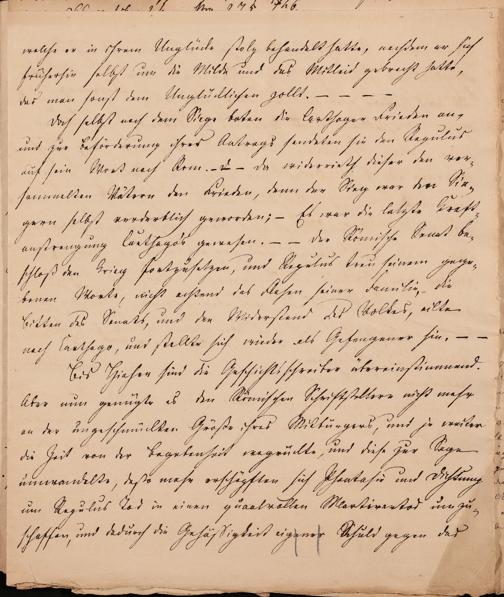 welche er in ihrem Unglücke stolz behandelt hatte, nachdem er sich
früherhin selbst um die Milde und das Mitleid gebracht hatte,
das man sonst dem Unglücklichen zollt. — — — —
Doch selbst nach dem Siege boten die Carthager Frieden an,
und zur Beförderung ihres Antrags sendeten sie den Regulus
auf sein Wort nach Rom. — Da widerrieth dieser den ver-
sammelten Vätern den Frieden, denn der Sieg war den Sie-
gern selbst verderblich geworden; — Es war die letzte Kraft-
anstrengung Carthagos gewesen. — — der Römische Senat be-
schloß den Krieg fortzusetzen, und Regulus treu seinem gege-
benen Worte, nicht achtend das Flehen seiner Familie, die
Bitten des Senats, und den Widerstand des Volkes, eilte
nach Carthago, und stellte sich wieder als Gefangener hin. — —
Bis hieher sind die Geschichtschreiber übereinstimmend.
Aber nun genügte es den Römischen Schriftstellern nicht mehr
an der ungeschmückten Größe ihres Mitbürgers, und je weiter
die Zeit von der Begebenheit wegrückte, und diese zur Sage
umwandelte, desto mehr erschöpften sich Phantasie und Dichtung
um Regulus Tod in einen qualvollen Martertod umzu-
schaffen, und dadurch die Gehässigkeit eigener Schuld gegen das